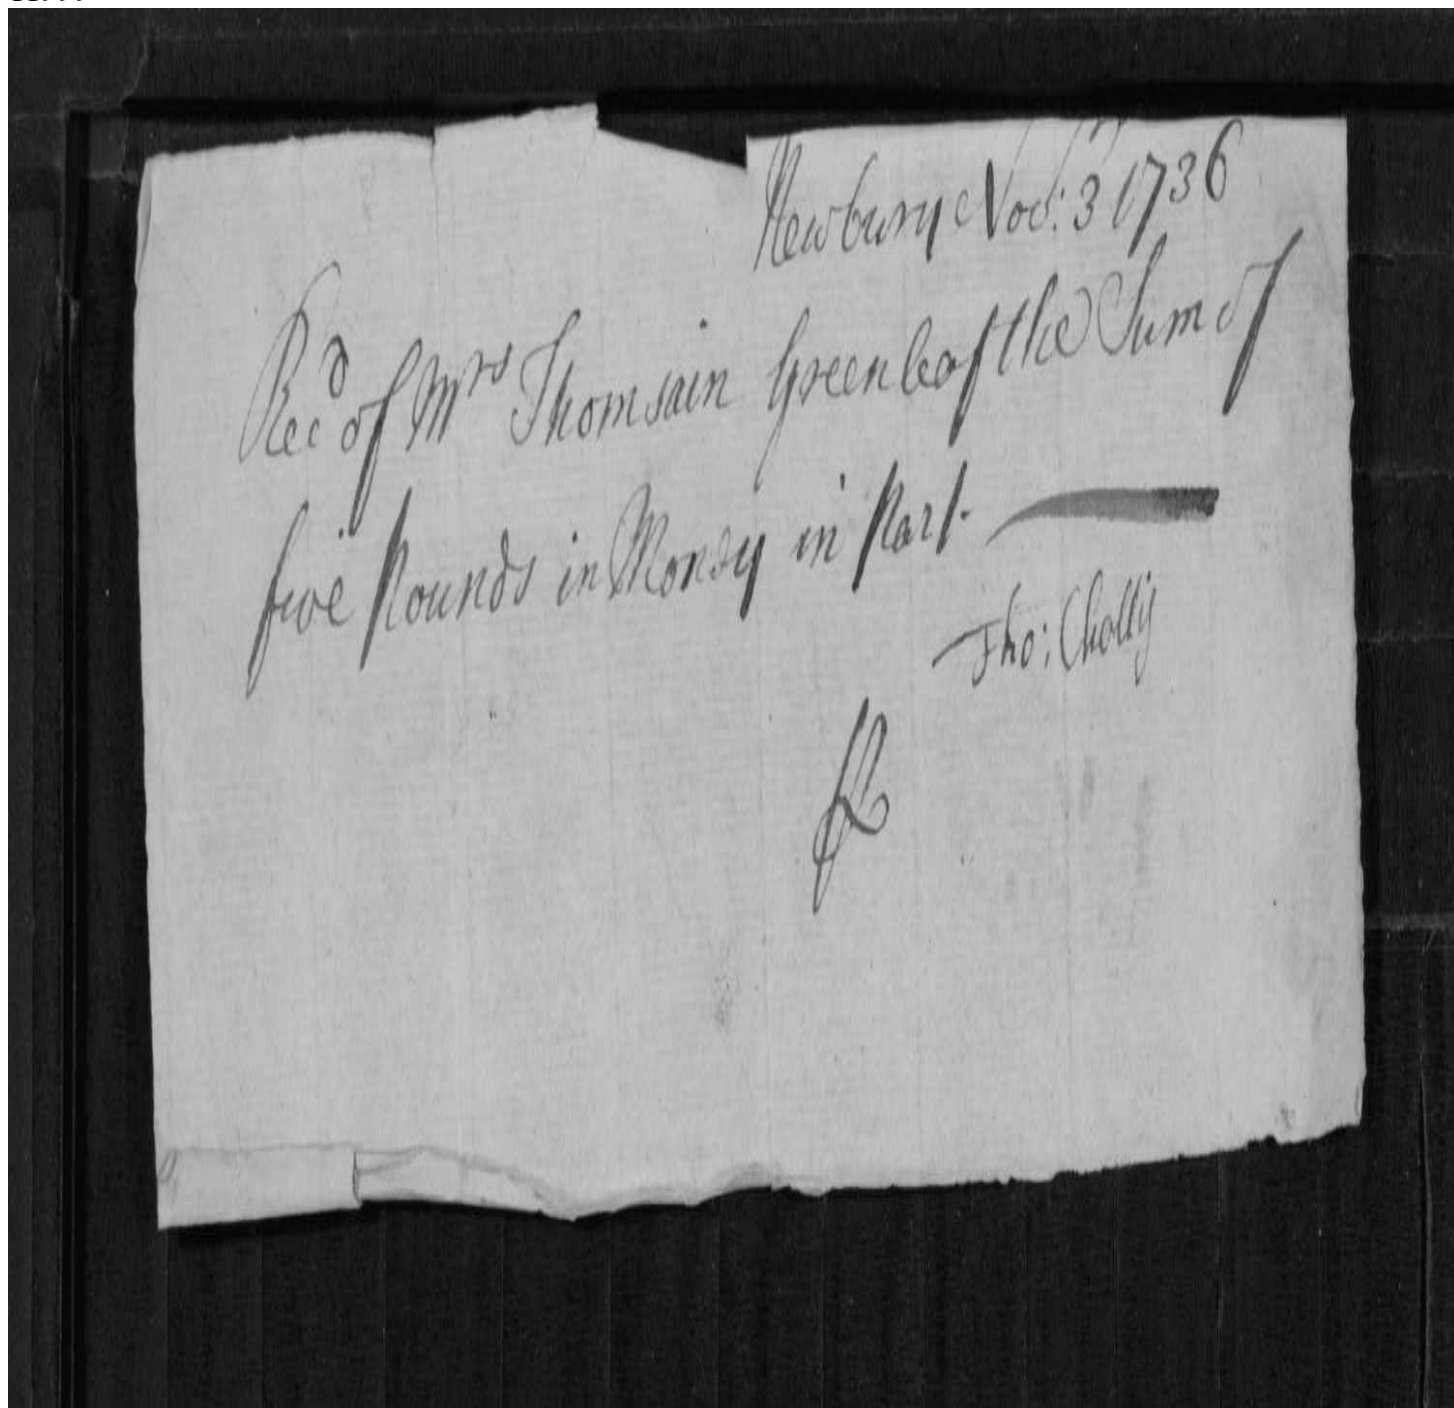 Newbury Nov: 3 1736
Recd of Mrs Thomsain Greenleaf the Sum of
five Pounds in Money in Part.
Tho: Chotty